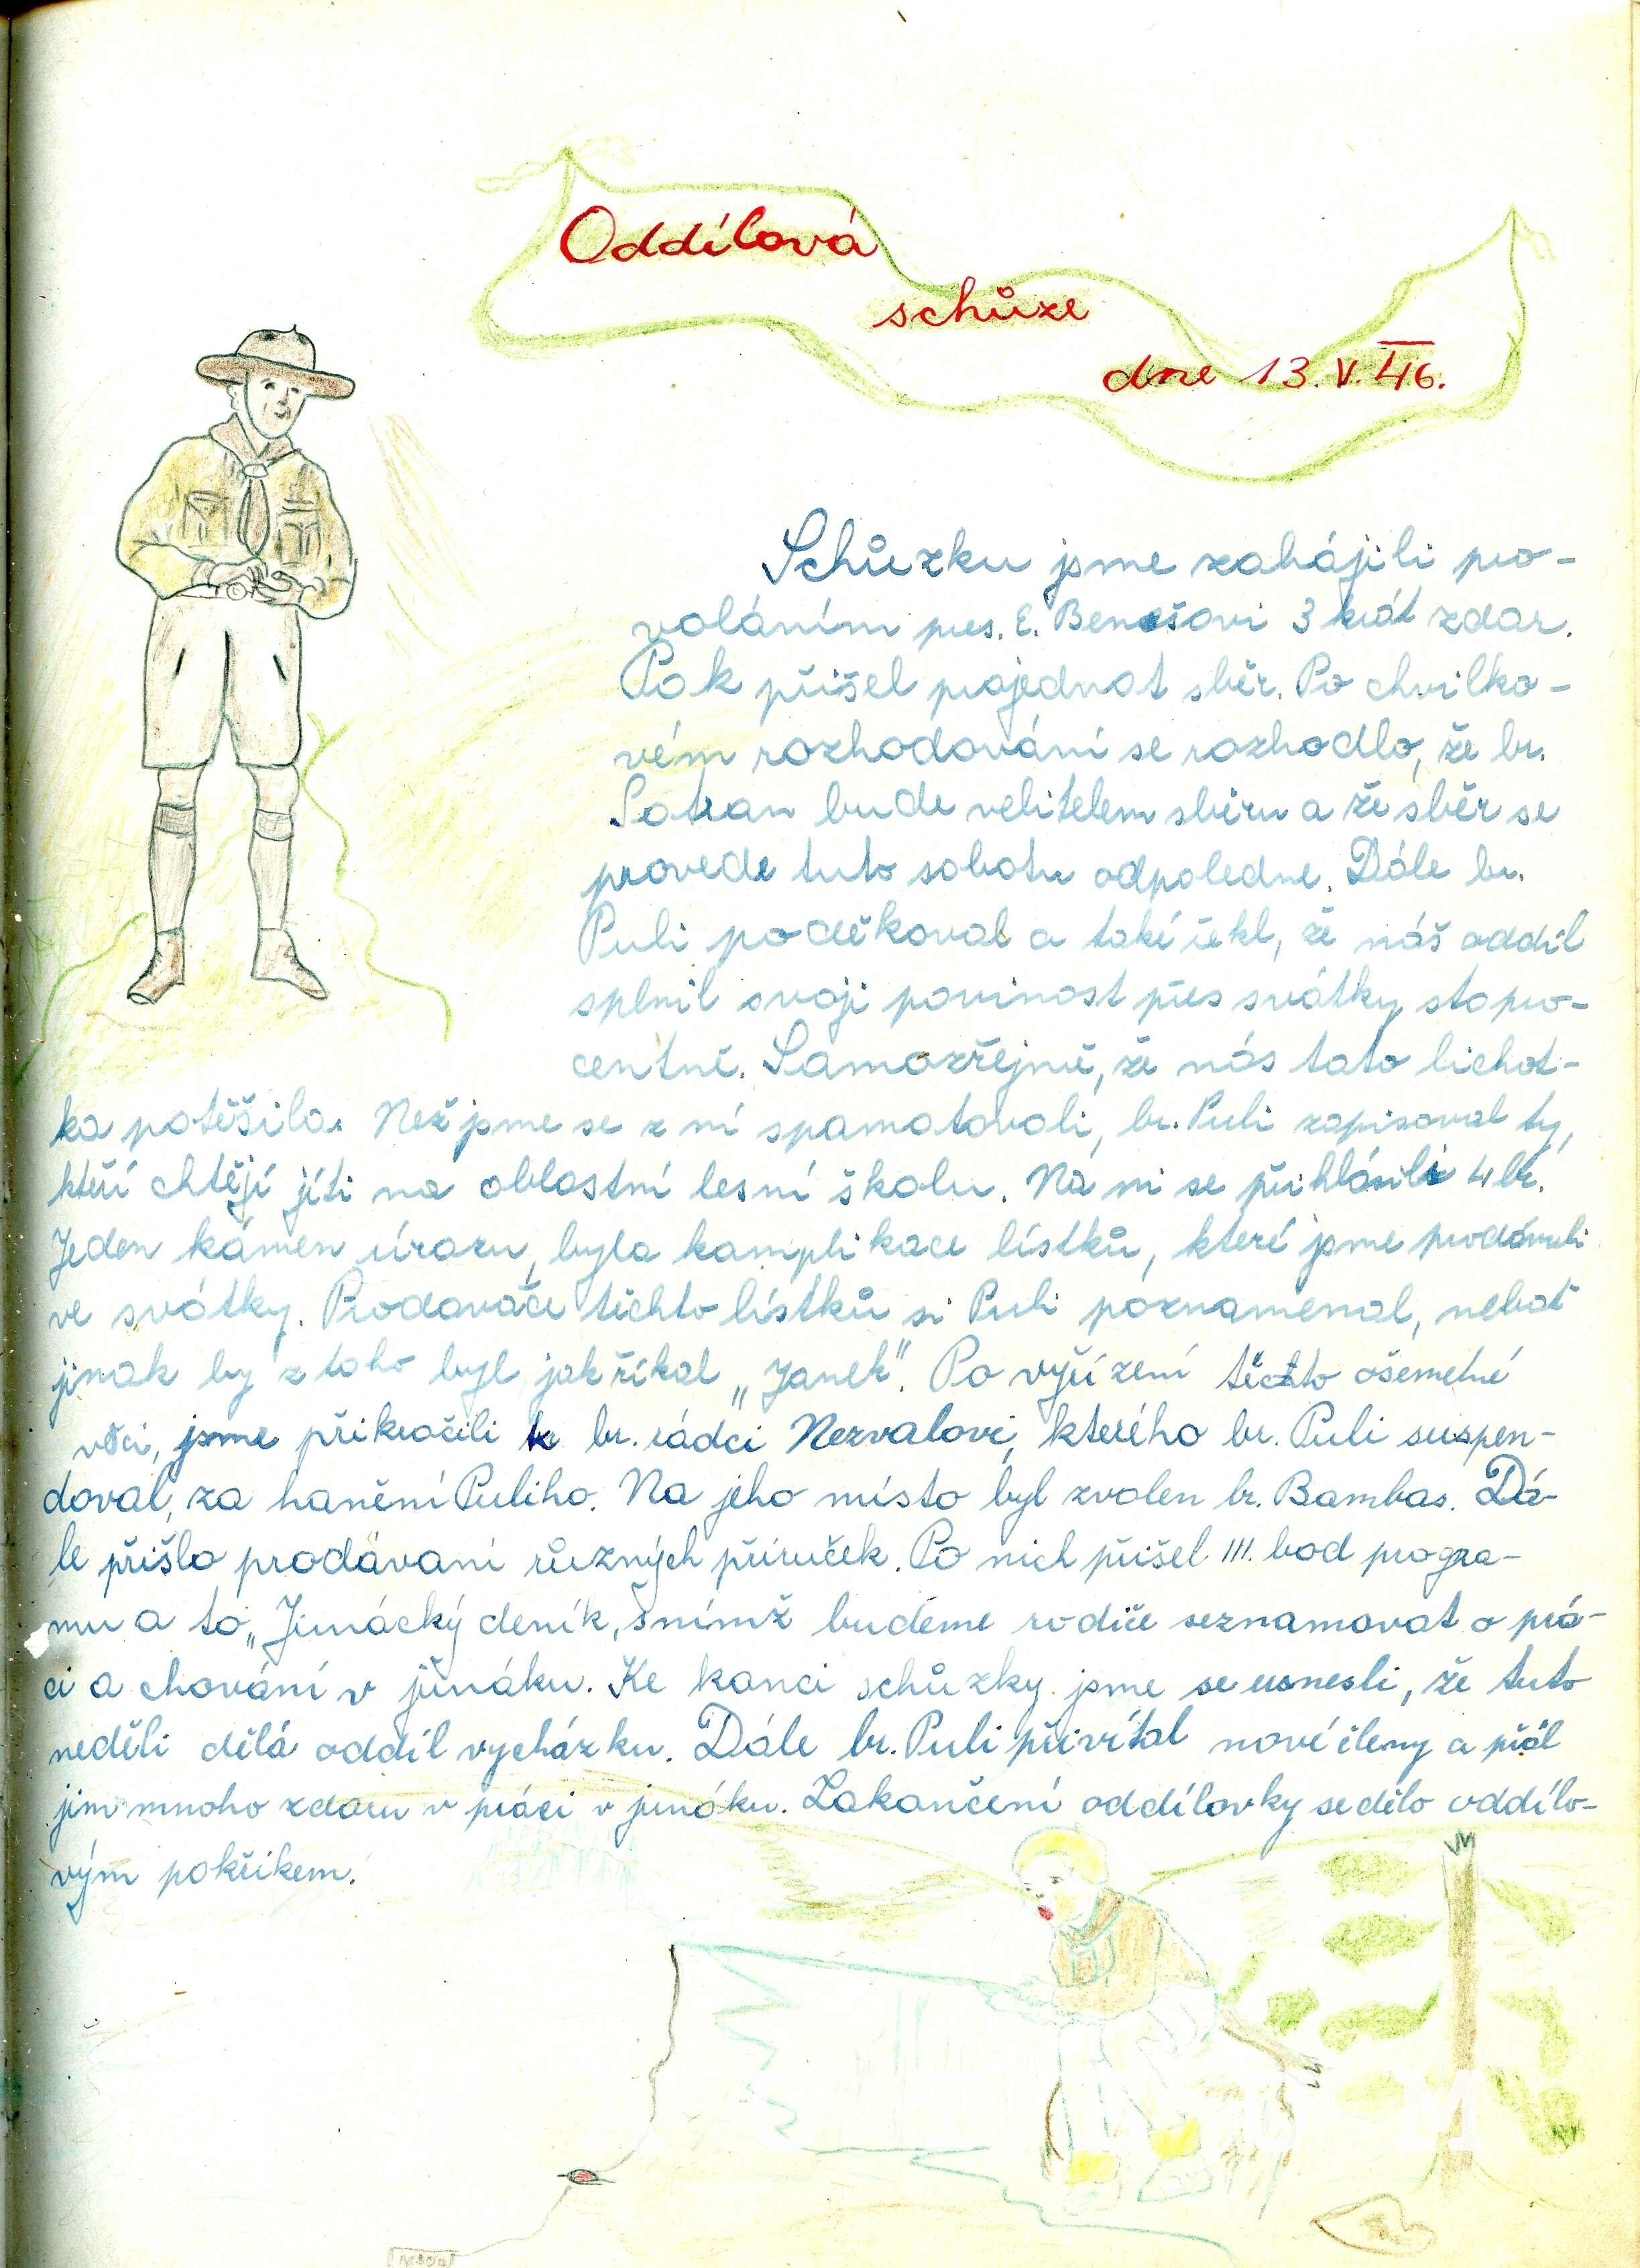 Oddílová
schůze
dne 13. V. 46.
Schůzku jsme zahájili pro-
voláním pres. E. Benešovi 3 krát zdar.
Pak přišel projednat sběr. Po chvilko-
vém rozhodování se rozhodlo, že br.
bude velitelem sběru a že sběr se
provede tuto sobotu odpoledne. Dále br.
Puli poděkoval a také řekl, že náš oddíl
splnil svoji povinost přes svátky stopro-
centně. Samozřejmě, že nás tato lichot-
ka potěšila. Než jsme se z ní spamatovali, br. Puli zapisoval ty,
kteří chtějí jíti na oblastní lesní školu. Na ni se přihlásili 4 br.
Jeden kámen úrazu, byla komplikace lístků, které jsme prodávali
ve svátky. Prodavače těchto lístků si Puli poznamenal, neboť
jinak by z toho byl jak říkal „Janek". Po vyřízení této ošemetné
věci, jsme přikročili k br. rádci Nezvalovi, kterého br. Puli suspen-
doval, za hanění Puliho. Na jeho místo byl zvolen br. Bambas. Dá-
le přišlo prodávaní různých příruček. Po nich přišel III. bod progra-
mu a to „Junácký deník, s nímž budeme rodiče seznamovat o prá-
ci a chování v junáku. Ke konci schůzky jsme se usnesli, že tuto
neděli dělá oddíl vycházku. Dále br. Puli přivítal nové členy a přál
jim mnoho zdaru v práci v junáku. Zakončení oddílovky se dělo oddílo-
vým pokřikem.